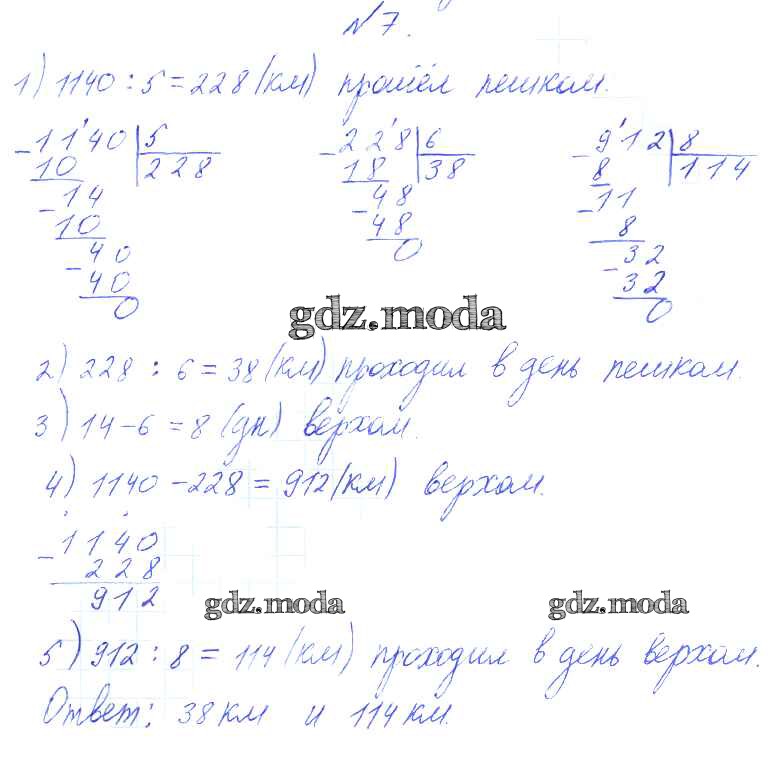 №7.
1) 1140 : 5 = 228 (км) прошёл пешком.
- 1140 | 5
10 | 228
- 14
10
- 40
40
0
- 228 | 6
18 | 38
- 48
48
0
- 912 | 8
8 | 114
- 11
8
- 32
32
0
gdz.moda
2) 228 : 6 = 38 (км) проходил в день пешком.
3) 14 - 6 = 8 (дн) верхом.
4) 1140 - 228 = 912 (км) верхом.
- 1140
228
912
gdz.moda gdz.moda
5) 912 : 8 = 114 (км) проходил в день верхом.
Ответ: 38 км и 114 км.